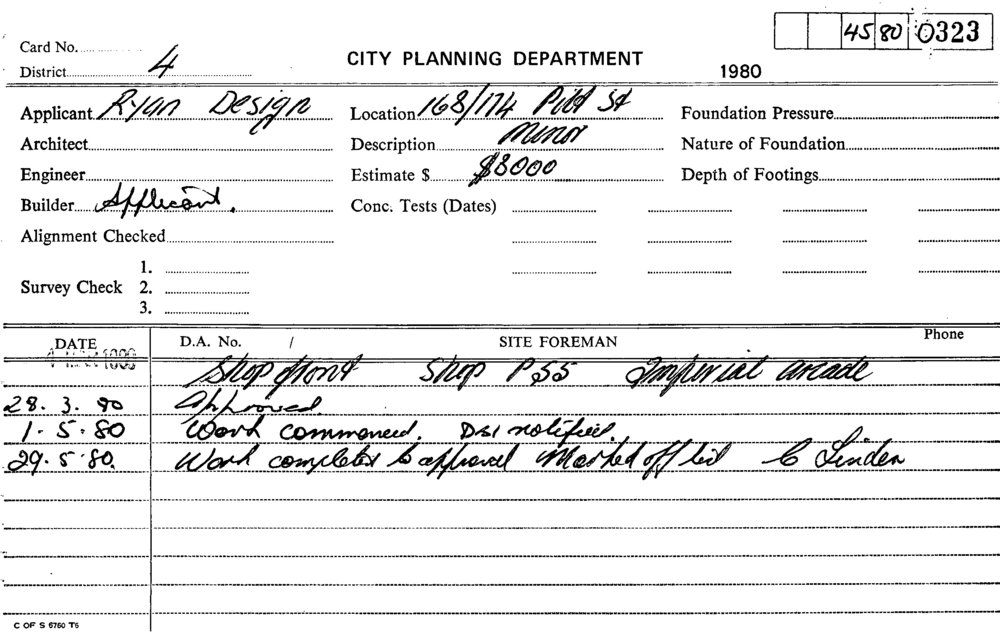 45 80 0323
Card No.
District 4
CITY PLANNING DEPARTMENT
1980
Applicant Ryan Design
Location 168/174 Pitt St
Foundation Pressure
Architect
Description Minor
Nature of Foundation
Engineer
Estimate $ $8000
Depth of Footings
Builder Applicant.
Conc. Tests (Dates)
Alignment Checked
1.
Survey Check 2.
3.
DATE D.A. No. / SITE FOREMAN Phone
Shop front Shop P55 Imperial arcade
28. 3. 80 Approved
1. 5. 80 Work commenced. DSI notified.
29. 5. 80. Work completed to approval Marked off C Linden
C OF S 6760 T6